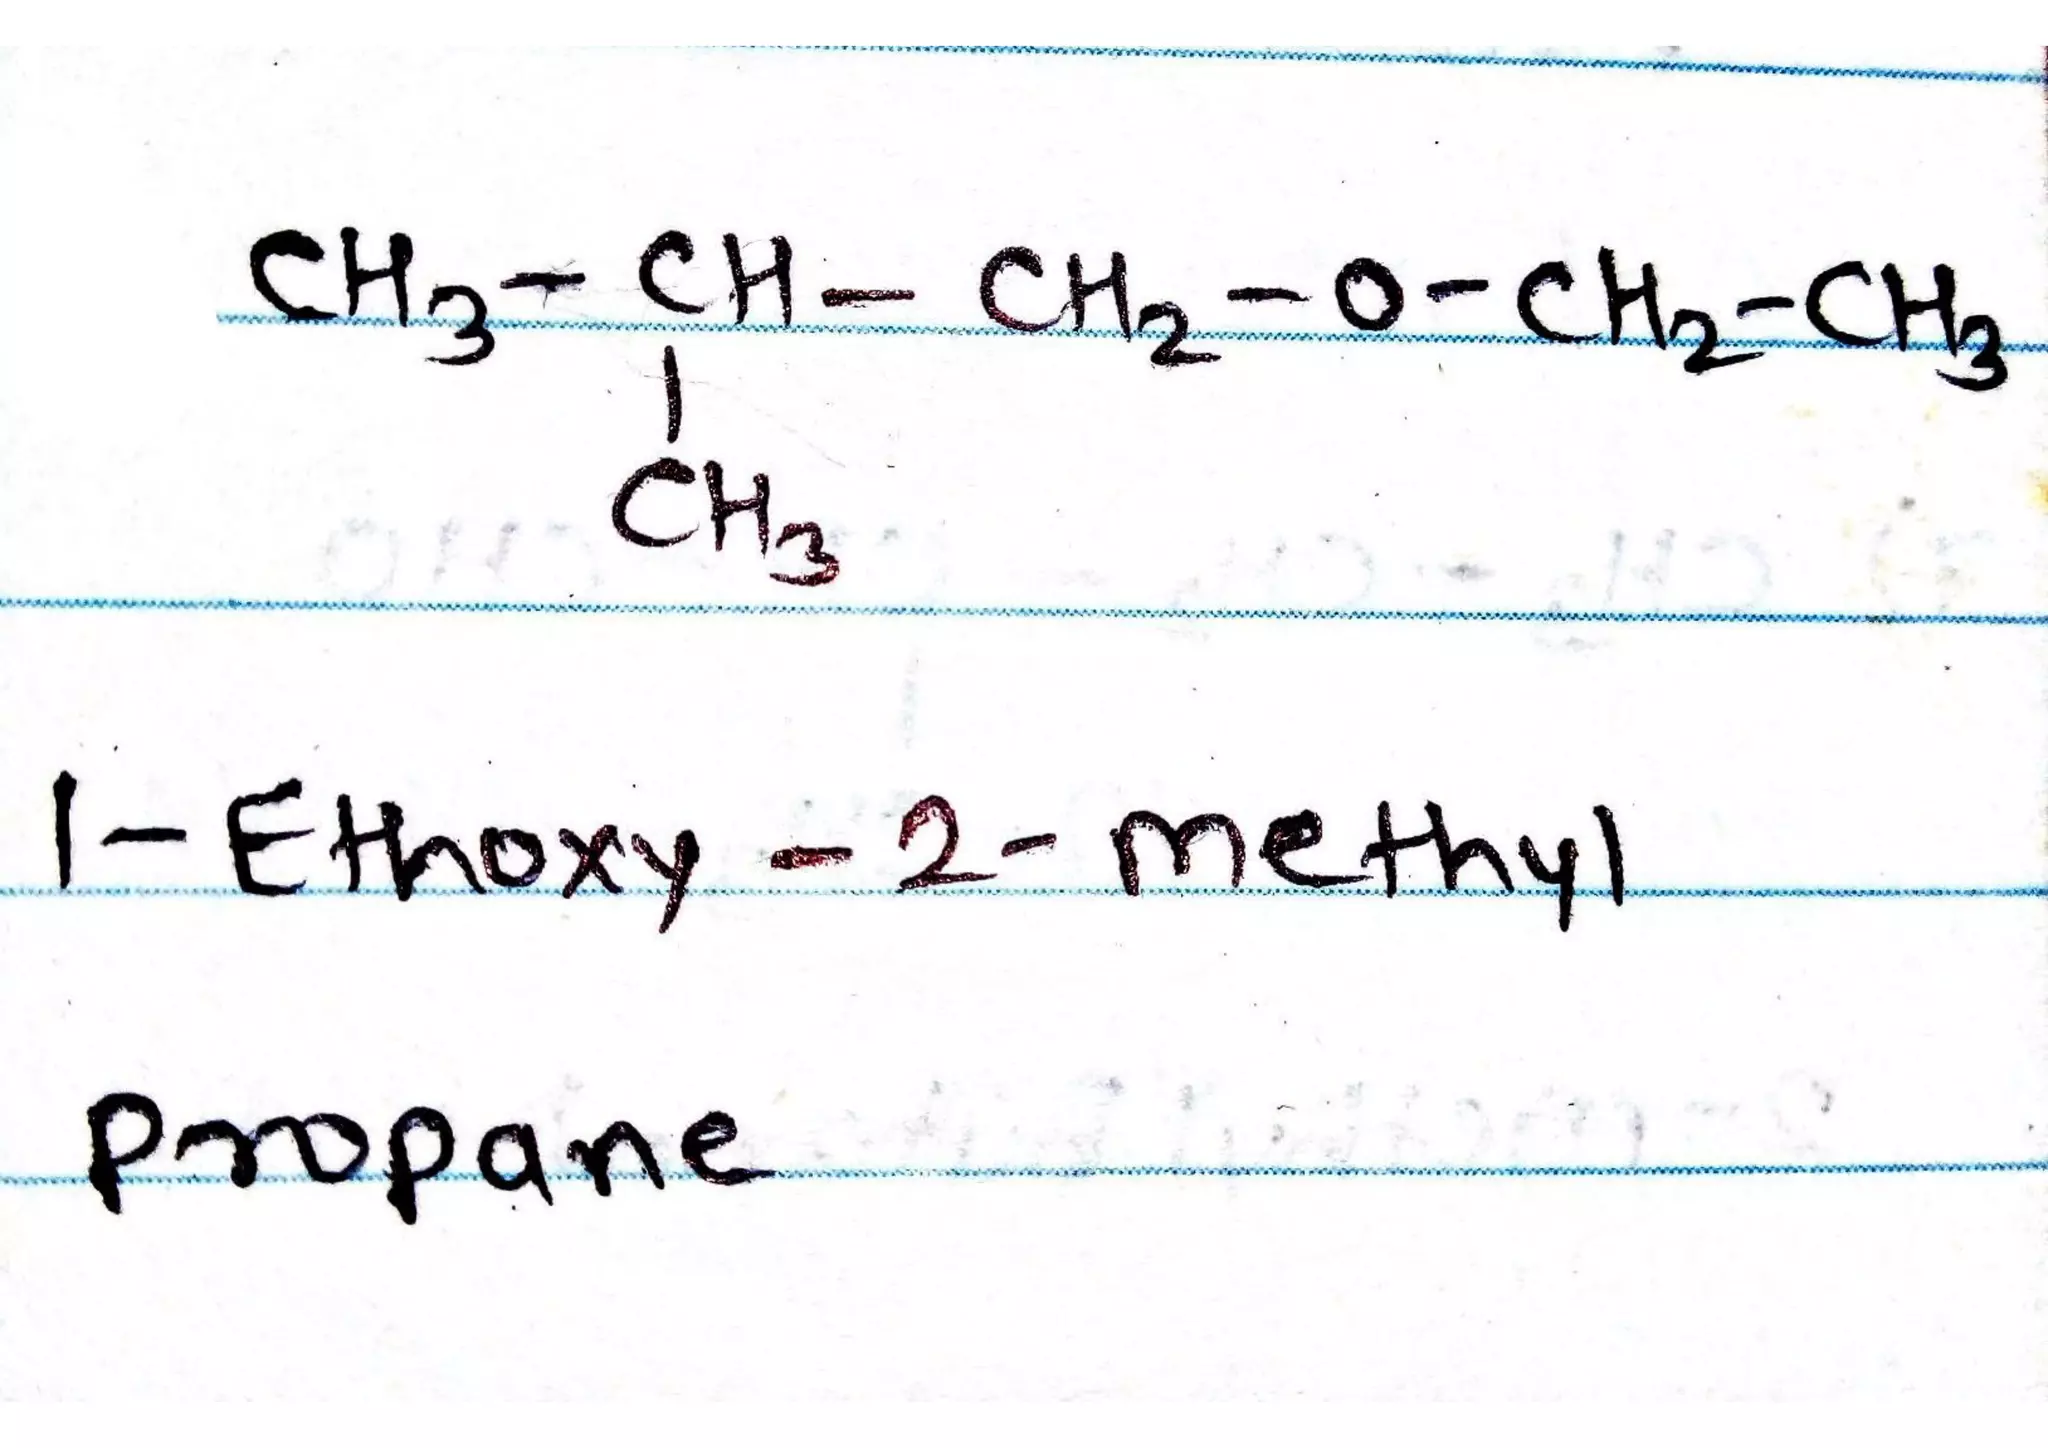 CH₃ - CH - CH₂ - O - CH₂ - CH₃
|
CH₃
1 - Ethoxy - 2 - methyl
propane